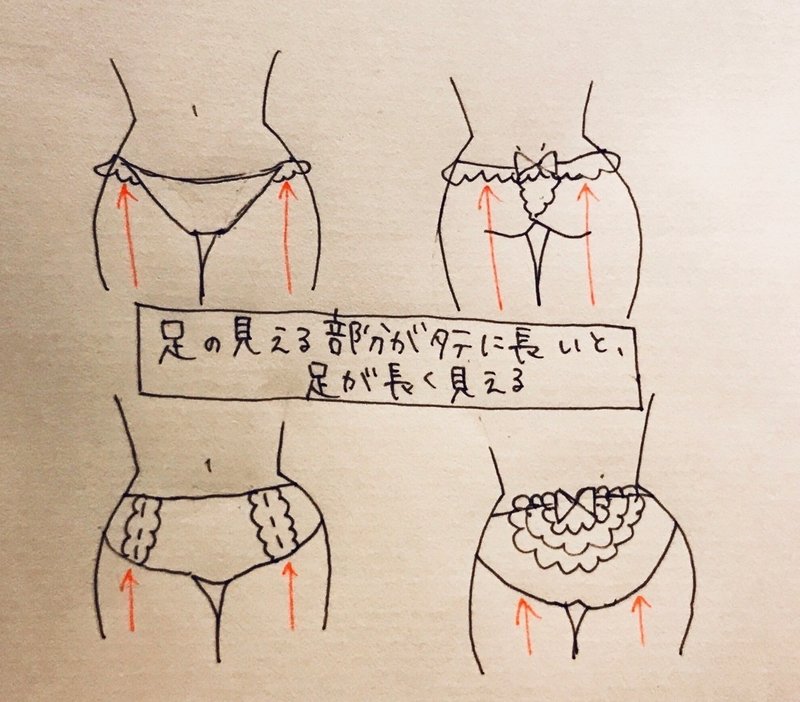 足の見える部分がタテに長いと、
足が長く見える